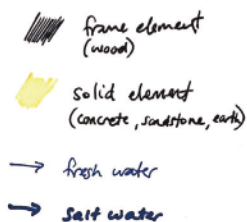 frame element
(wood)
solid element
(concrete, sandstone, earth)
fresh water
salt water